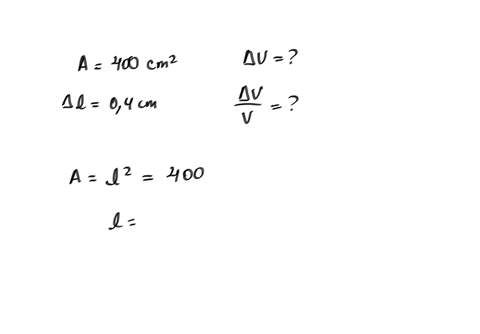 A = 400 cm² ΔV = ?
Δl = 0,4 cm ΔV/V = ?
A = l² = 400
l =